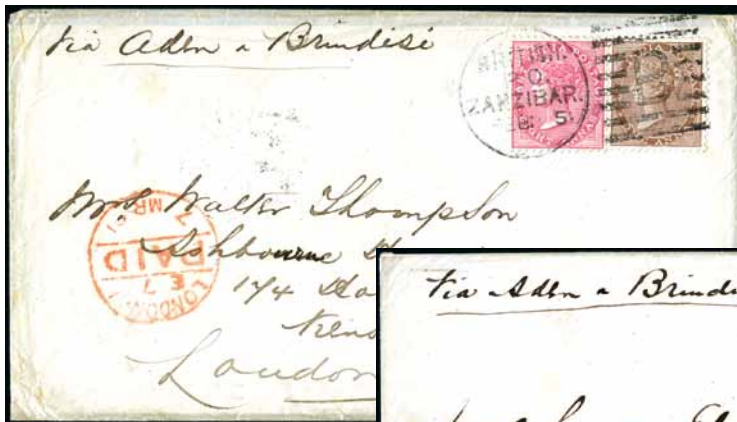 Via Aden & Brindisi
BRITISH.
P.O.
ZANZIBAR.
5.
Mrs Walter Thompson
Ashbourne H
174
Kens
London
LONDON
7 MR
PAID
E 7
Via Aden & Brindi